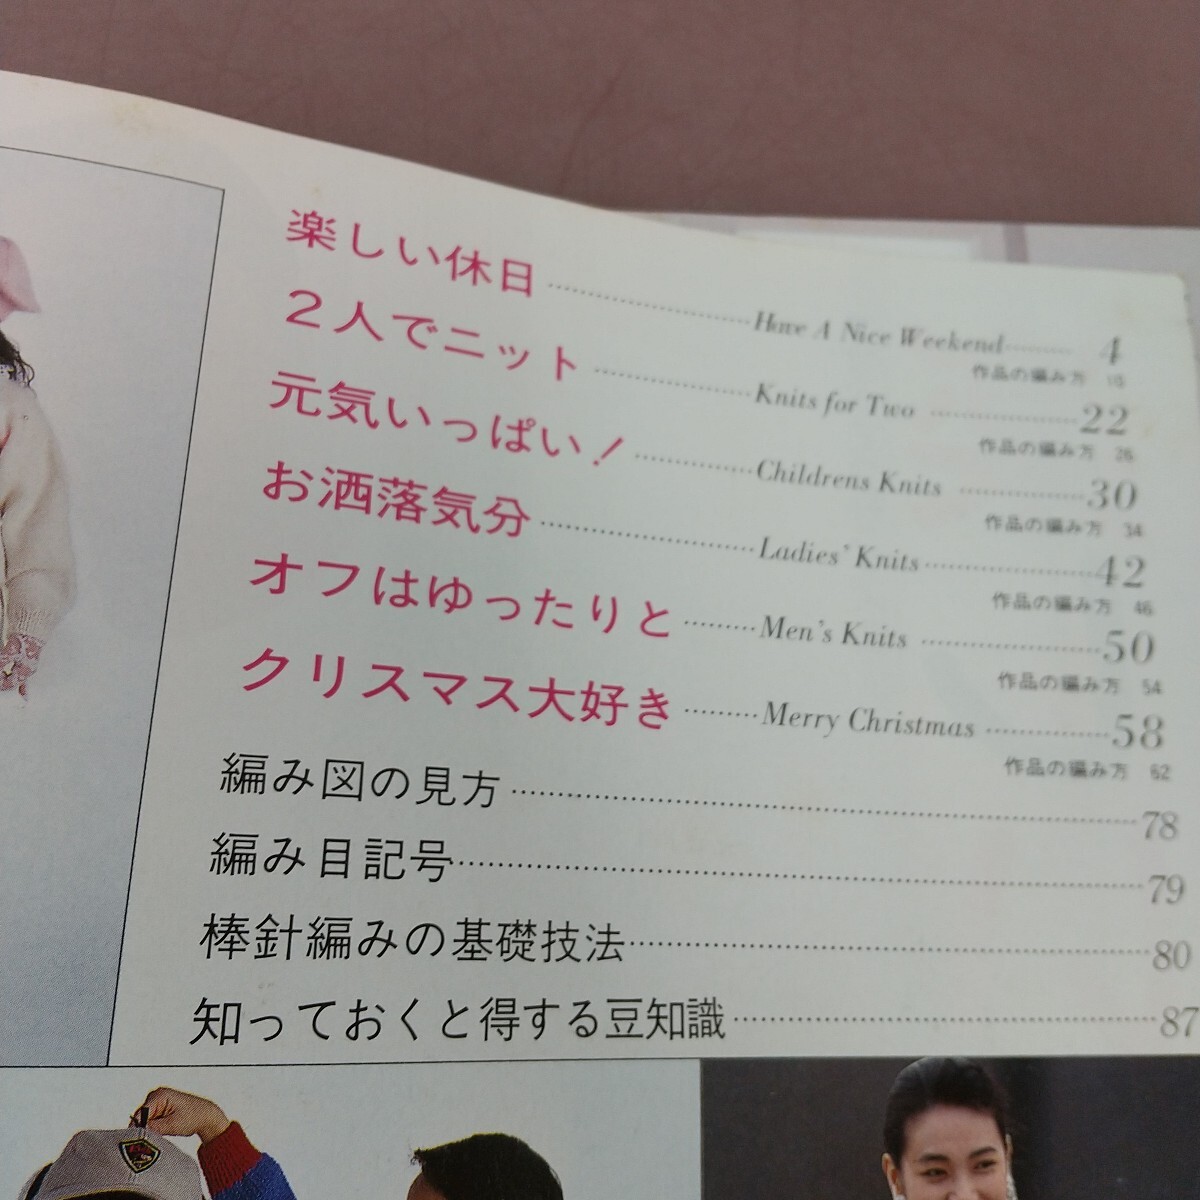 楽しい休日 Have A Nice Weekend 4
作品の編み方 10
2人でニット Knits for Two 22
作品の編み方 26
元気いっぱい! Childrens Knits 30
作品の編み方 34
お洒落気分 Ladies' Knits 42
作品の編み方 46
オフはゆったりと Men's Knits 50
作品の編み方 54
クリスマス大好き Merry Christmas 58
作品の編み方 62
編み図の見方 78
編み目記号 79
棒針編みの基礎技法 80
知っておくと得する豆知識 87